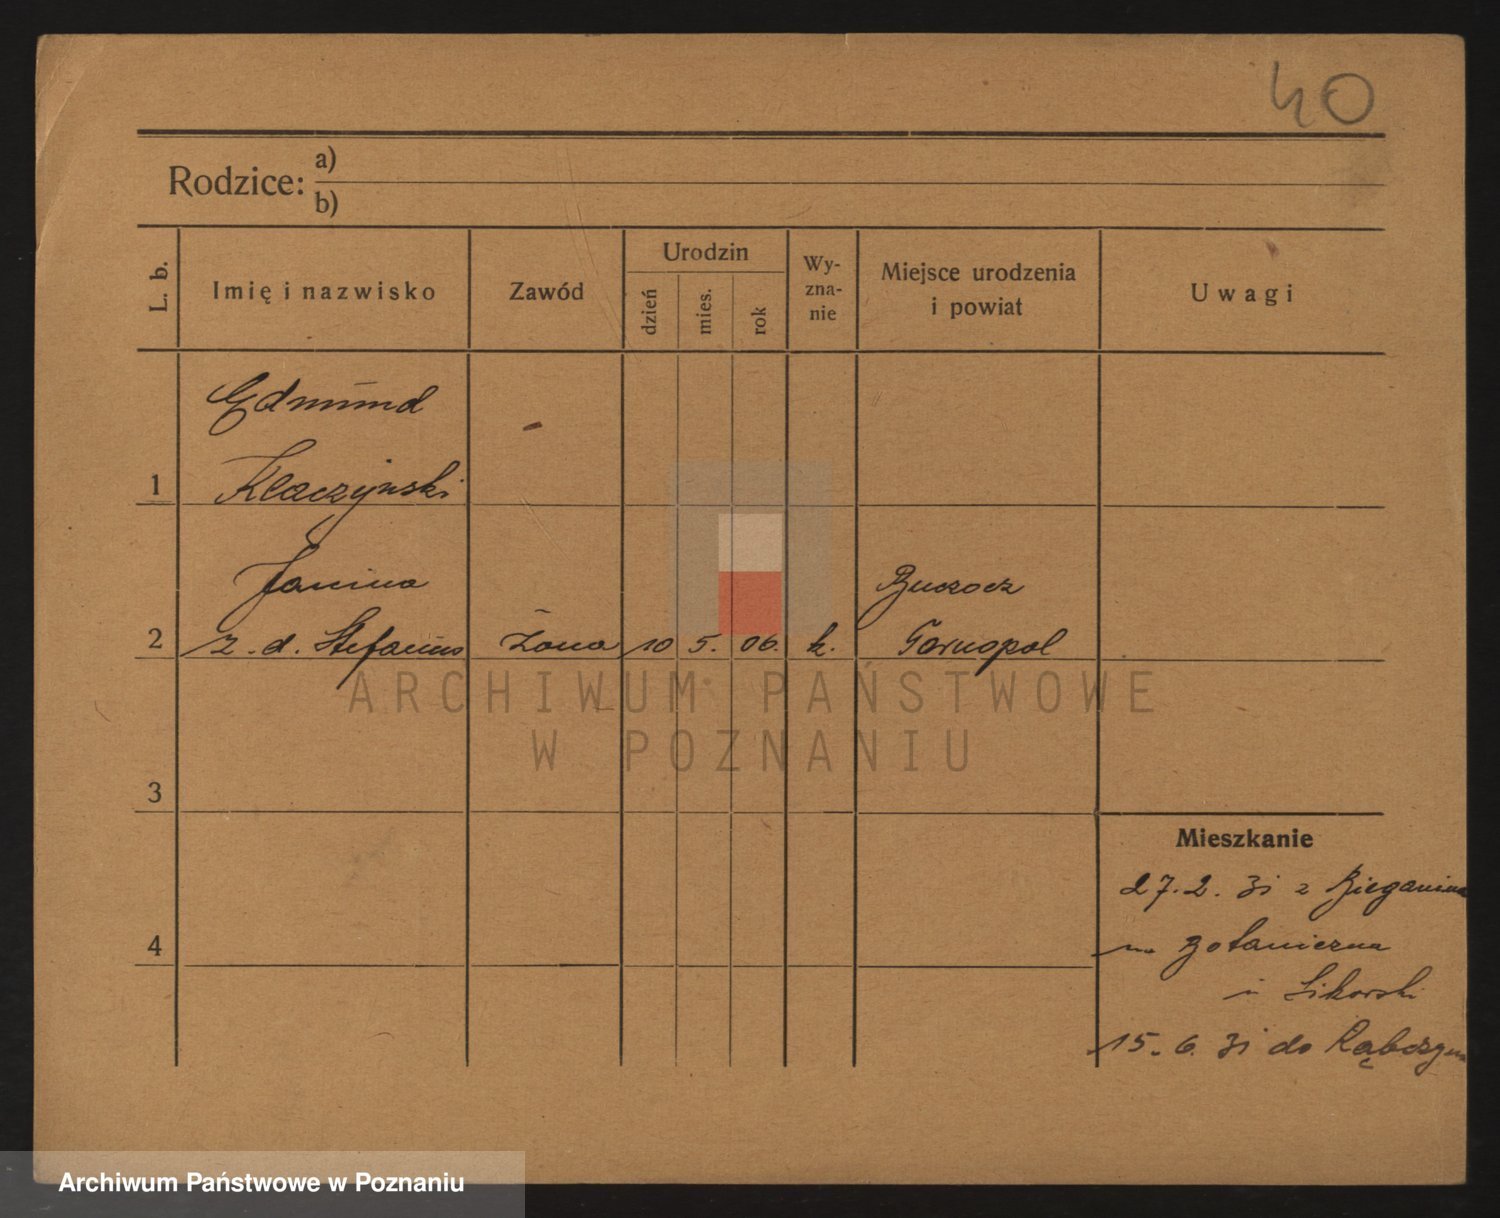 40
Rodzice: a)
b)
L. b. Imię i nazwisko Zawód Urodzin dzień mies. rok Wy-zna-nie Miejsce urodzenia i powiat Uwagi
Edmund
1 Klaczyński
Janina Buczacz
2 z. d. Żona 10 5. 06. k. Tarnopol
ARCHIWUM PAŃSTWOWE
W POZNANIU
3
Mieszkanie
27.2.31 z Bieganina
4 na Botaniczna
Sikorski
15.6.31 do
Archiwum Państwowe w Poznaniu